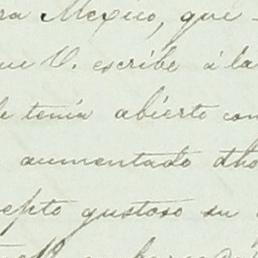 ra Mexico, que
ue V. escribe á la
le tenia abierto con
aumentado dho
epto gustoso su